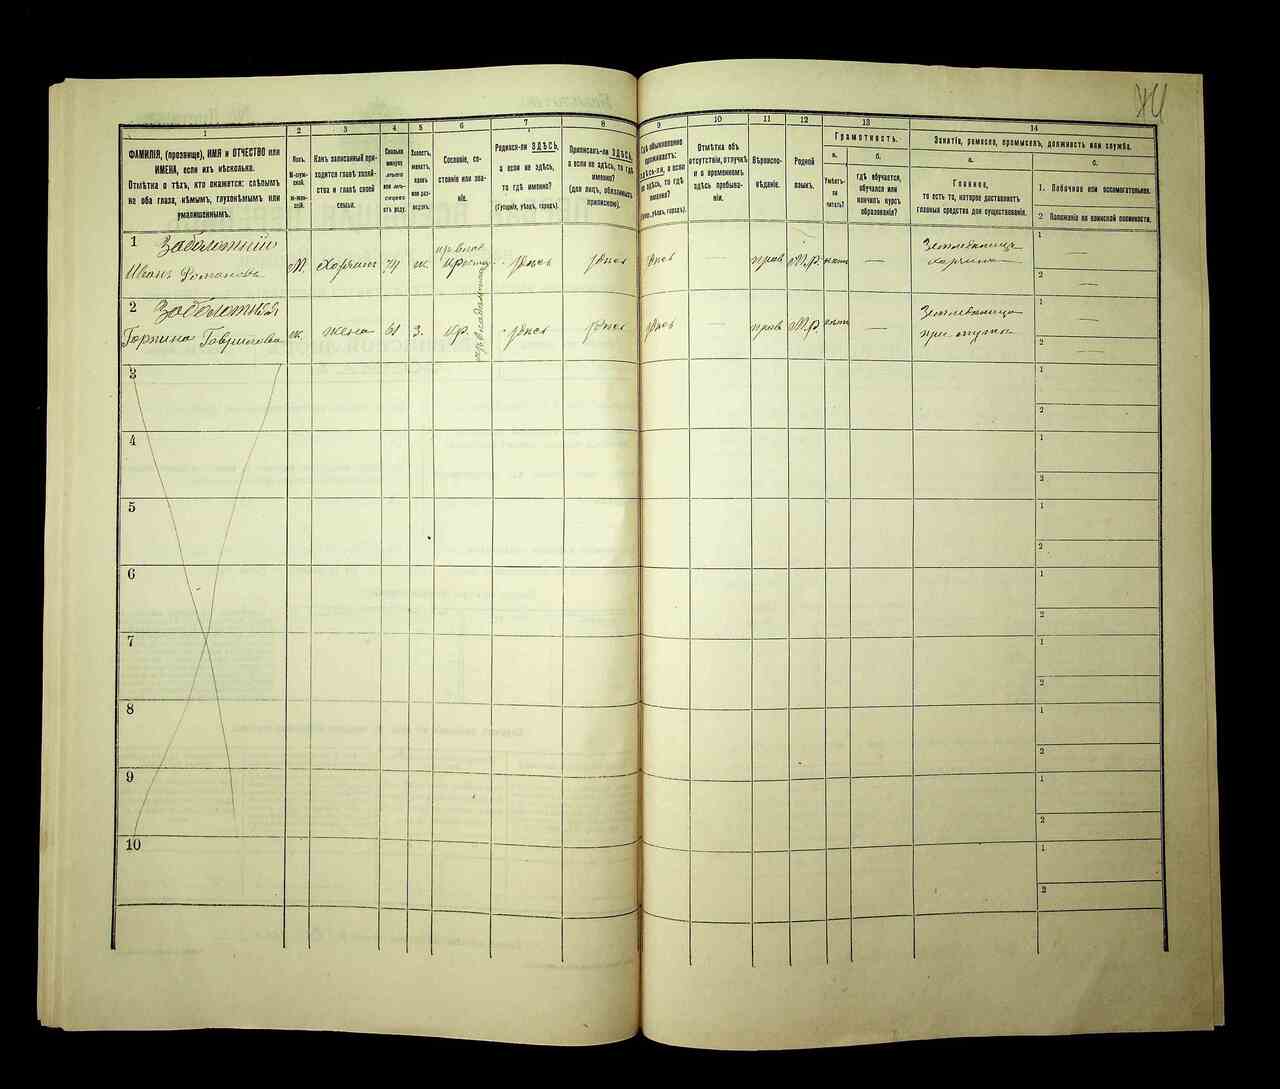 1
ФАМИЛІЯ, (прозвище), ИМЯ и ОТЧЕСТВО или
ИМЕНА, если ихъ нѣсколько.
Отмѣтка о тѣхъ, кто окажется: слѣпымъ
на оба глаза, нѣмымъ, глухонѣмымъ или
умалишеннымъ.
2
Полъ.
М-муж-
ской.
ж-жен-
скій.
3
Какъ записанный при-
ходится главѣ хозяй-
ства и главѣ своей
семьи.
4
Сколько
минуло
лѣтъ
отъ роду.
5
Холостъ,
женатъ,
вдовъ
или раз-
веденъ.
6
Сословіе, со-
стояніе или зва-
ніе.
7
Родился-ли ЗДѢСЬ,
а если не здѣсь,
то гдѣ именно?
(Губернія, уѣздъ, городъ).
8
Приписанъ-ли ЗДѢСЬ,
а если не здѣсь, то гдѣ
именно?
(для лицъ, обязанныхъ
припиской).
9
Гдѣ обыкновенно
проживаетъ:
здѣсь-ли, а если
не здѣсь, то гдѣ
именно?
10
Отмѣтка объ
отсутствіи, отлучкѣ
и о временномъ
здѣсь пребыва-
ніи.
11
Вѣроиспо-
вѣданіе.
12
Родной
языкъ.
13
Грамотность.
а.
Умѣетъ-
ли
читать?
б.
гдѣ обучается,
обучался или
кончилъ курсъ
образованія?
14
Занятіе, ремесло, промыселъ, должность или служба.
а.
Главное,
то есть то, которое доставляетъ
главныя средства для существованія.
б.
1. Побочное или вспомогательное.
2 Положеніе по воинской повинности.
1
Заболотній
Иванъ Романовъ
М. Хозяин 74 ж. здѣсь здѣсь здѣсь — прав М.р. нет —
Земледѣлецъ
хозяинъ
1 —
2 —
2
Заболотная
Горпина Гавриловна
ж. жена 61 З. кр. здѣсь здѣсь здѣсь — прав М.р. нет —
Земледѣлица
при мужѣ
1 —
2 —
3
1
2
4
1
2
5
1
2
6
1
2
7
1
2
8
1
2
9
1
2
10
1
2